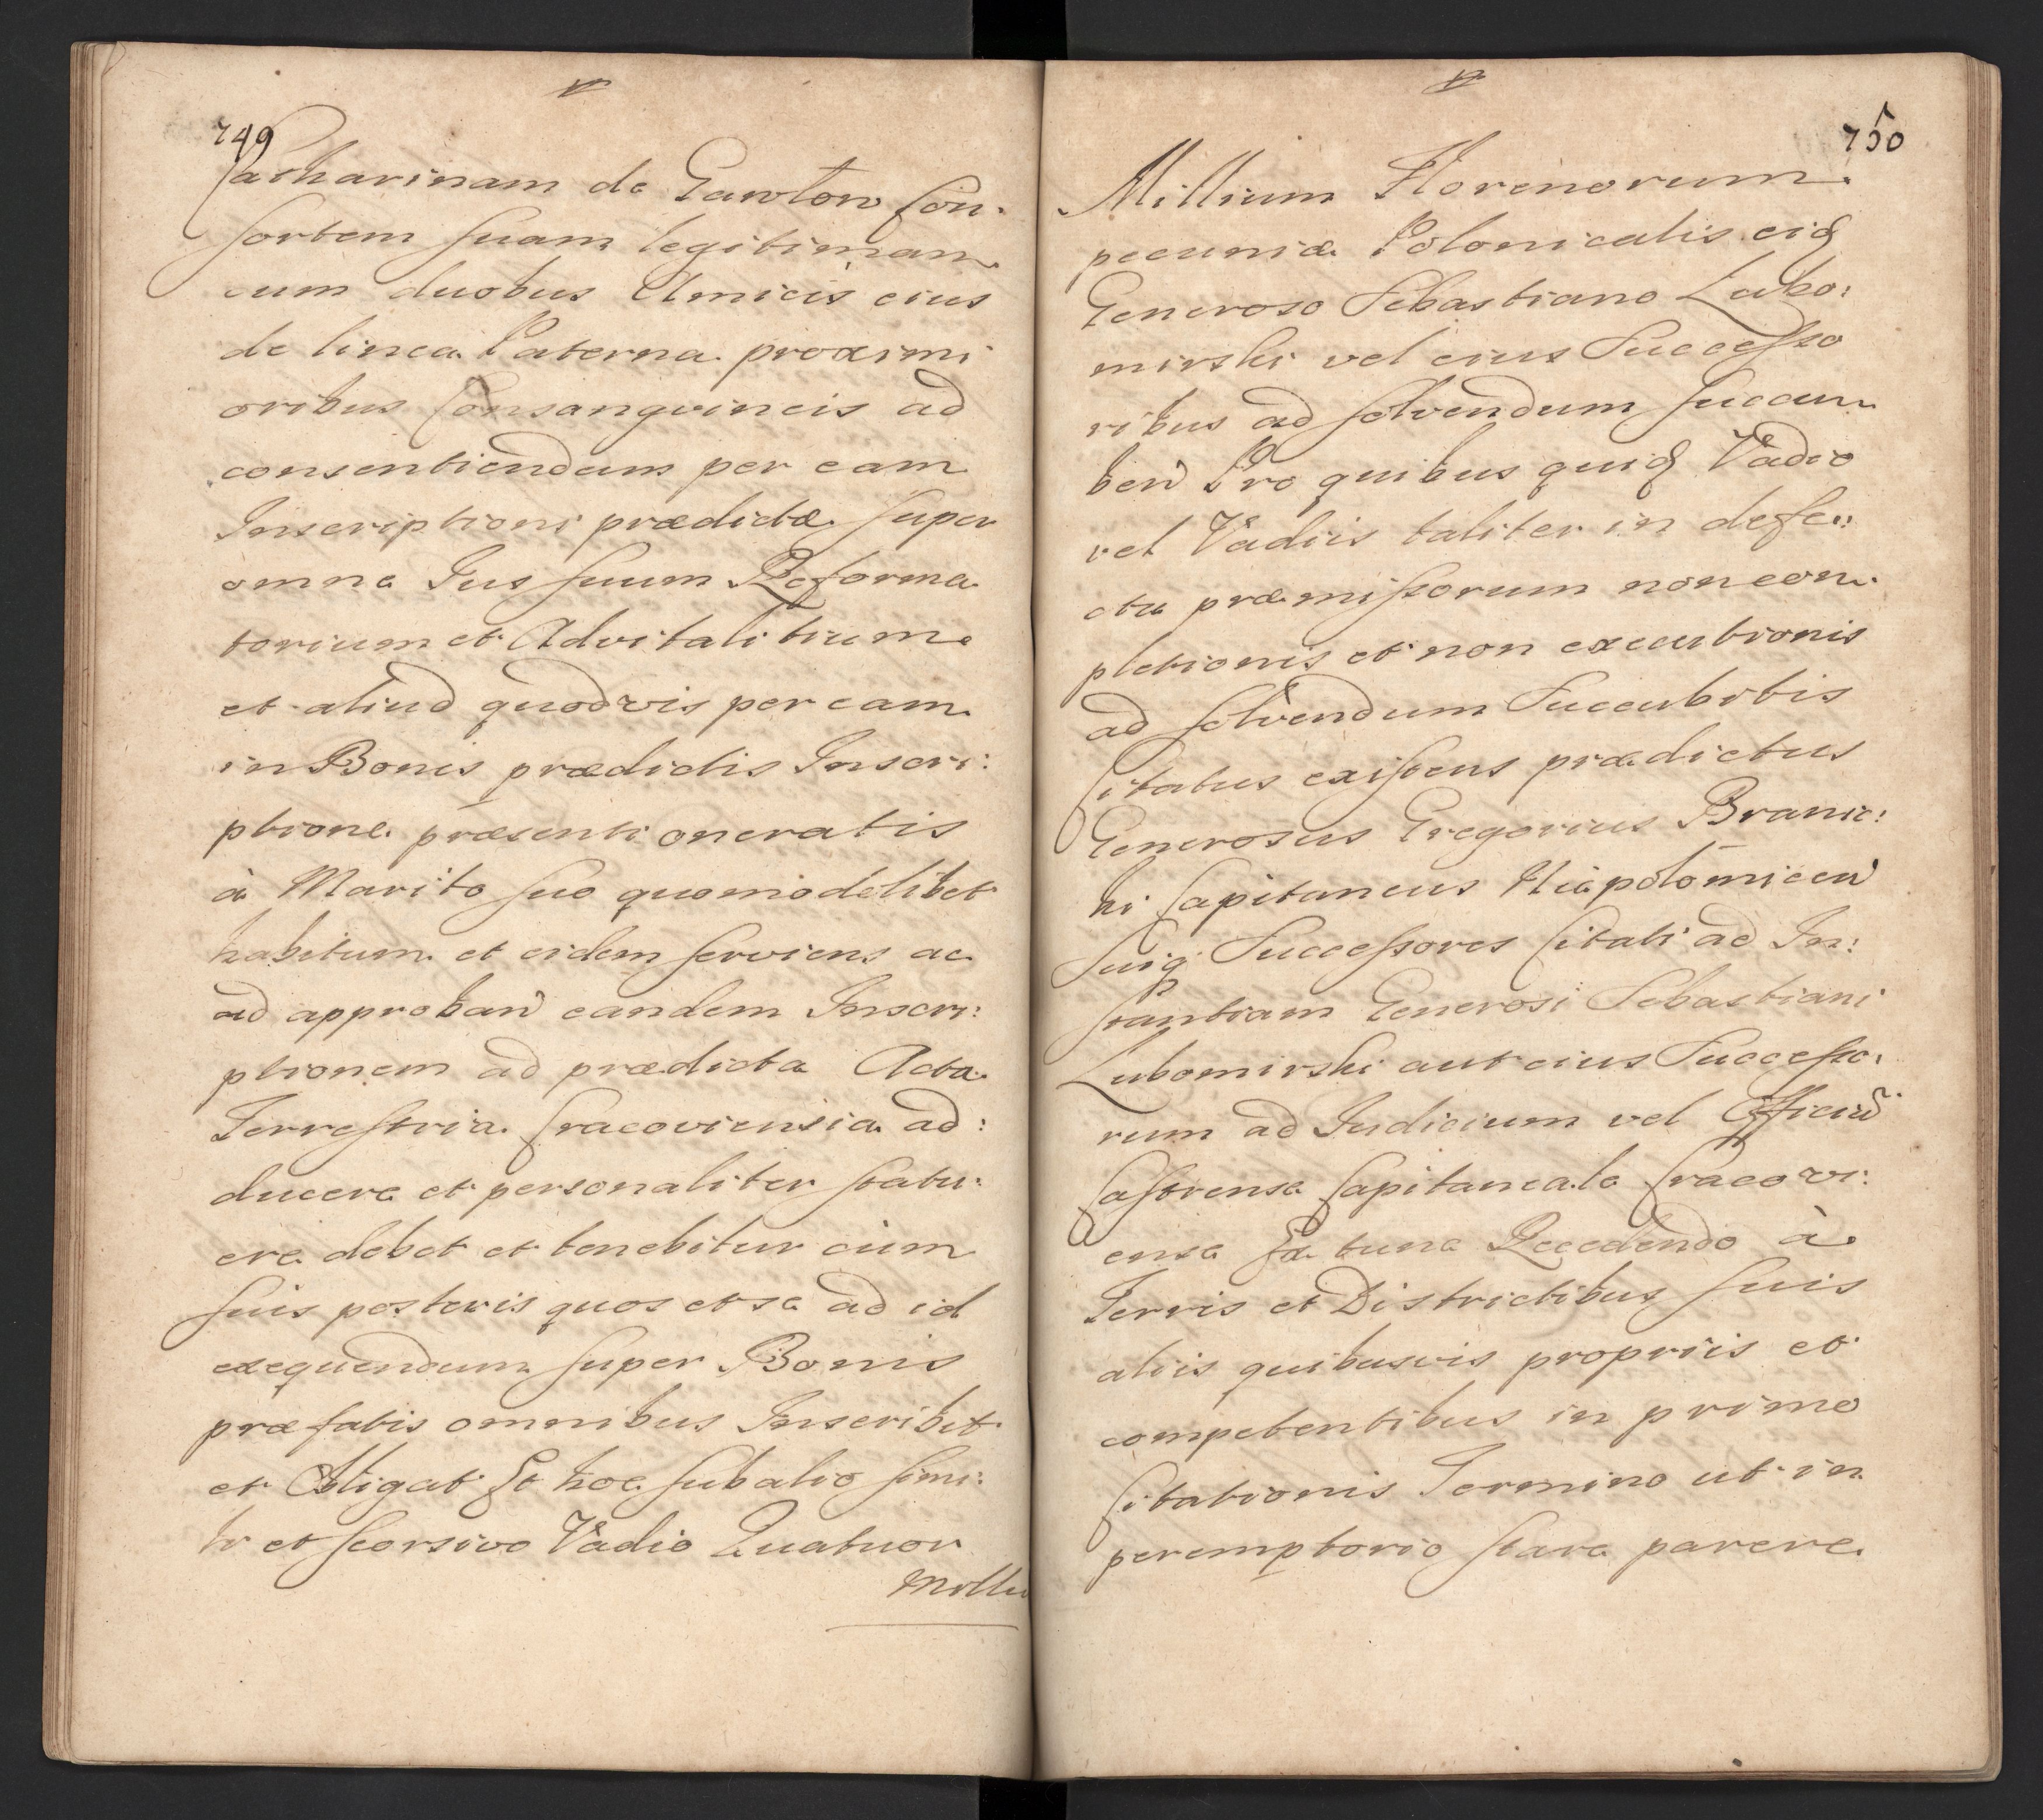 749
Catharinam de Gawlon Con:
sortem suam legitimam
cum duobus Amicis eius
de linea Paterna proximi
oribus Consanguineis ad
consentiendum per eam
Inscriptioni prædictæ super
omne Jus suum Reforma
torium et Advitalitium
et aliud quodvis per eam
in Bonis prædictis Inscri:
ptione præsenti oneratis
à Marito suo quomodolibet
habitum et eidem serviens ac
ad approban̄ eandem Inscri:
ptionem ad prædicta Acta
Terrestria Cracoviensia ad:
ducere et personaliter statu:
ere debet et tenebitur cum
suis posteris quos et se ad id
exequendum super Bonis
præfatis omnibus Inscribit
et Obligat Et hoc sub alio simi:
li et seorsivo Vadio Quatuor
Milliū
750
Millium Florenorum
pecuniæ Polonicalis eidq
Generoso Sebastiano Lubo:
mirski vel eius Successo
ribus ad solvendum succum
ben̄ Pro quibus quidq Vadio
vel Vadiis taliter in defe:
ctu præmissorum non com
pletionis et non executionis
ad solvendum Succubitis
Citatus existens prædictus
Generosus Gregorius Branic:
ki Capitaneus Niepolomicen̄
suiq Successores Citati ad In:
stantiam Generosi Sebastiani
Lubomirski aut eius Successo:
rum ad Judicium vel Officiū
Castrense Capitaneale Cracovi:
ense Ex tunc Recedendo à
Terris et Districtibus suis
aliis quibusvis propriis et
competentibus in primo
Citationis Termino ut in
peremptorio stare parere